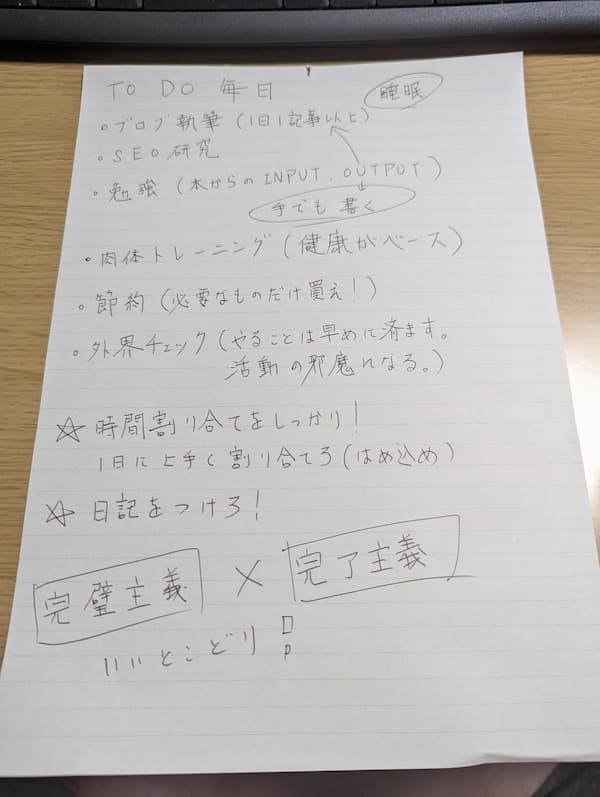 TO DO 毎日
睡眠
・ブログ執筆(1日1記事以上)
・SEO研究
・勉強(本からのINPUT.OUTPUT)
手でも書く
・肉体トレーニング(健康がベース)
・節約(必要なものだけ買え!)
・外界チェック(やることは早めに済ます。
活動の邪魔になる。)
☆時間割り合てをしっかり!
1日に上手く割り合てろ(はめ込め)
☆日記をつけろ!
完璧主義 × 完了主義
いいとこどり